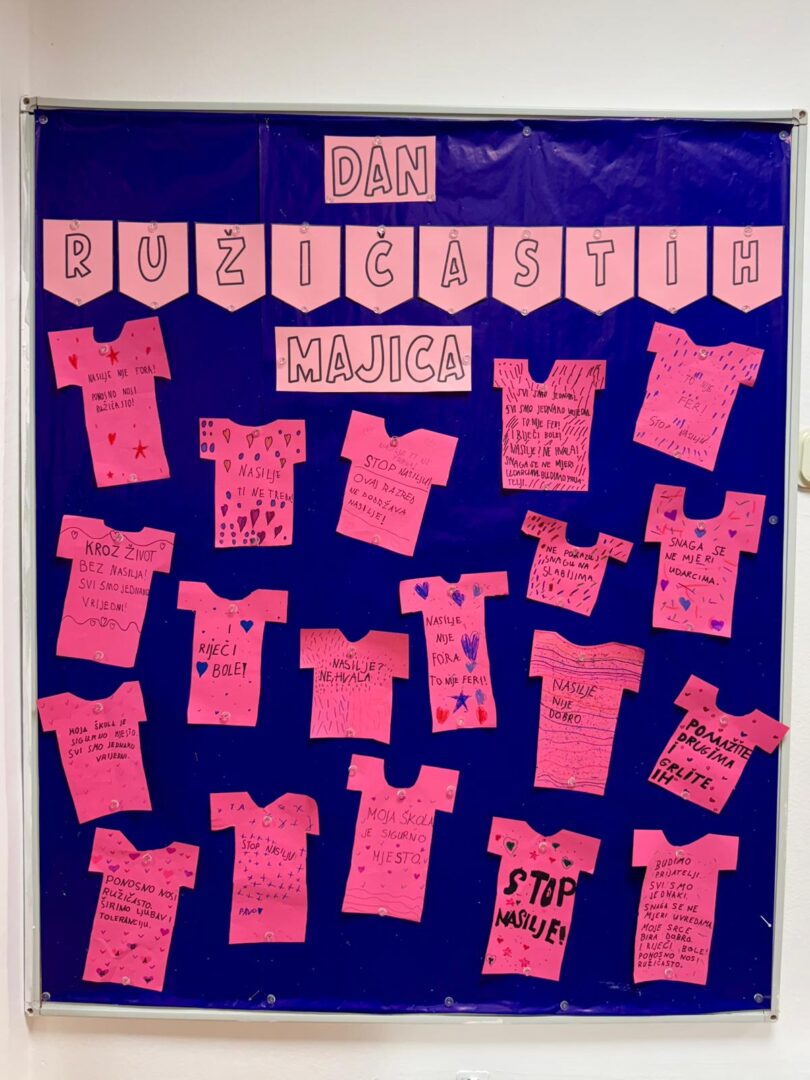 DAN
RUŽIČASTIH
MAJICA
NASILJE NIJE FORA!
PONOSNO NOSI
RUŽIČASTO!
NASILJE
TI NE TREBA
STOP NASILJU!
OVAJ RAZRED
NE PODRŽAVA
NASILJE!
SVI SMO JEDNAKI.
SVI SMO JEDNAKO VRIJEDNI
TO NIJE FER!
I RIJEČI BOLE!
NASILJE? NE HVALA!
SNAGA SE NE MJERI
UDARCIMA. BUDIMO PRIJA-
TELJI.
TO NIJE
FER!
STOP NASILJU
KROZ ŽIVOT
BEZ NASILJA!
SVI SMO JEDNAKO
VRIJEDNI!
I
RIJEČI
BOLE!
NASILJE?
NE HVALA
NASILJE
NIJE
FORA
TO NIJE FERI!
NE POKAZUJ
SNAGU NA
SLABIJIMA.
SNAGA SE
NE MJERI
UDARCIMA.
MOJA ŠKOLA JE
SIGURNO MJESTO.
SVI SMO JEDNAKO
VRIJEDNI.
NASILJE
NIJE
DOBRO
POMAŽITE
DRUGIMA
I
GRLITE
IH
PONOSNO NOSI
RUŽIČASTO.
ŠIRIMO LJUBAV I
TOLERANCIJU.
STOP NASILJU
MOJA ŠKOLA
JE SIGURNO
MJESTO.
STOP
NASILJE!
BUDIMO
PRIJATELJI.
SVI SMO
JEDNAKI.
SNAGA SE NE
MJERI UVREDAMA
MOJE SRCE
BIRA DOBRO.
I RIJEČI BOLE!
PONOSNO NOSI
RUŽIČASTO.